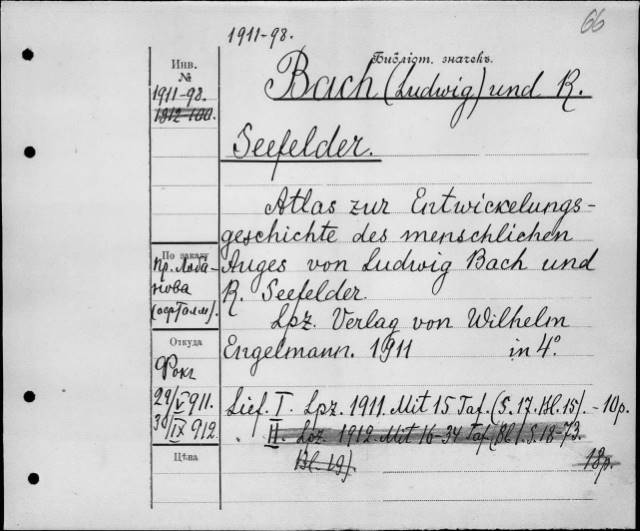 66
1911-98.
Библіот. значекъ.
Инв.
№
1911-98.
1912-100.
Bach (Ludwig) und R.
Seefelder.
Atlas zur Entwickelungs-
geschichte des menschlichen
Auges von Ludwig Bach und
R. Seefelder.
Lpz. Verlag von Wilhelm
Engelmann. 1911 in 4°.
По заказу
пр. Лоба-
нова
(офталм).
Откуда
Фокг
29/V 911.
30/IX 912.
Цѣна
Lief. I. Lpz. 1911. Mit 15 Taf. (S. 17. Bl. 15). - 10р.
" II. Lpz. 1912. Mit 16-34 Taf. (Bl). S. 18-73.
Bl. 19). 18р.